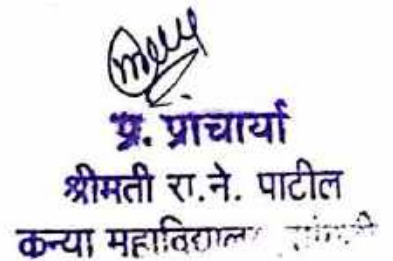 प्र. प्राचार्या
श्रीमती रा.ने. पाटील
कन्या महाविद्यालय